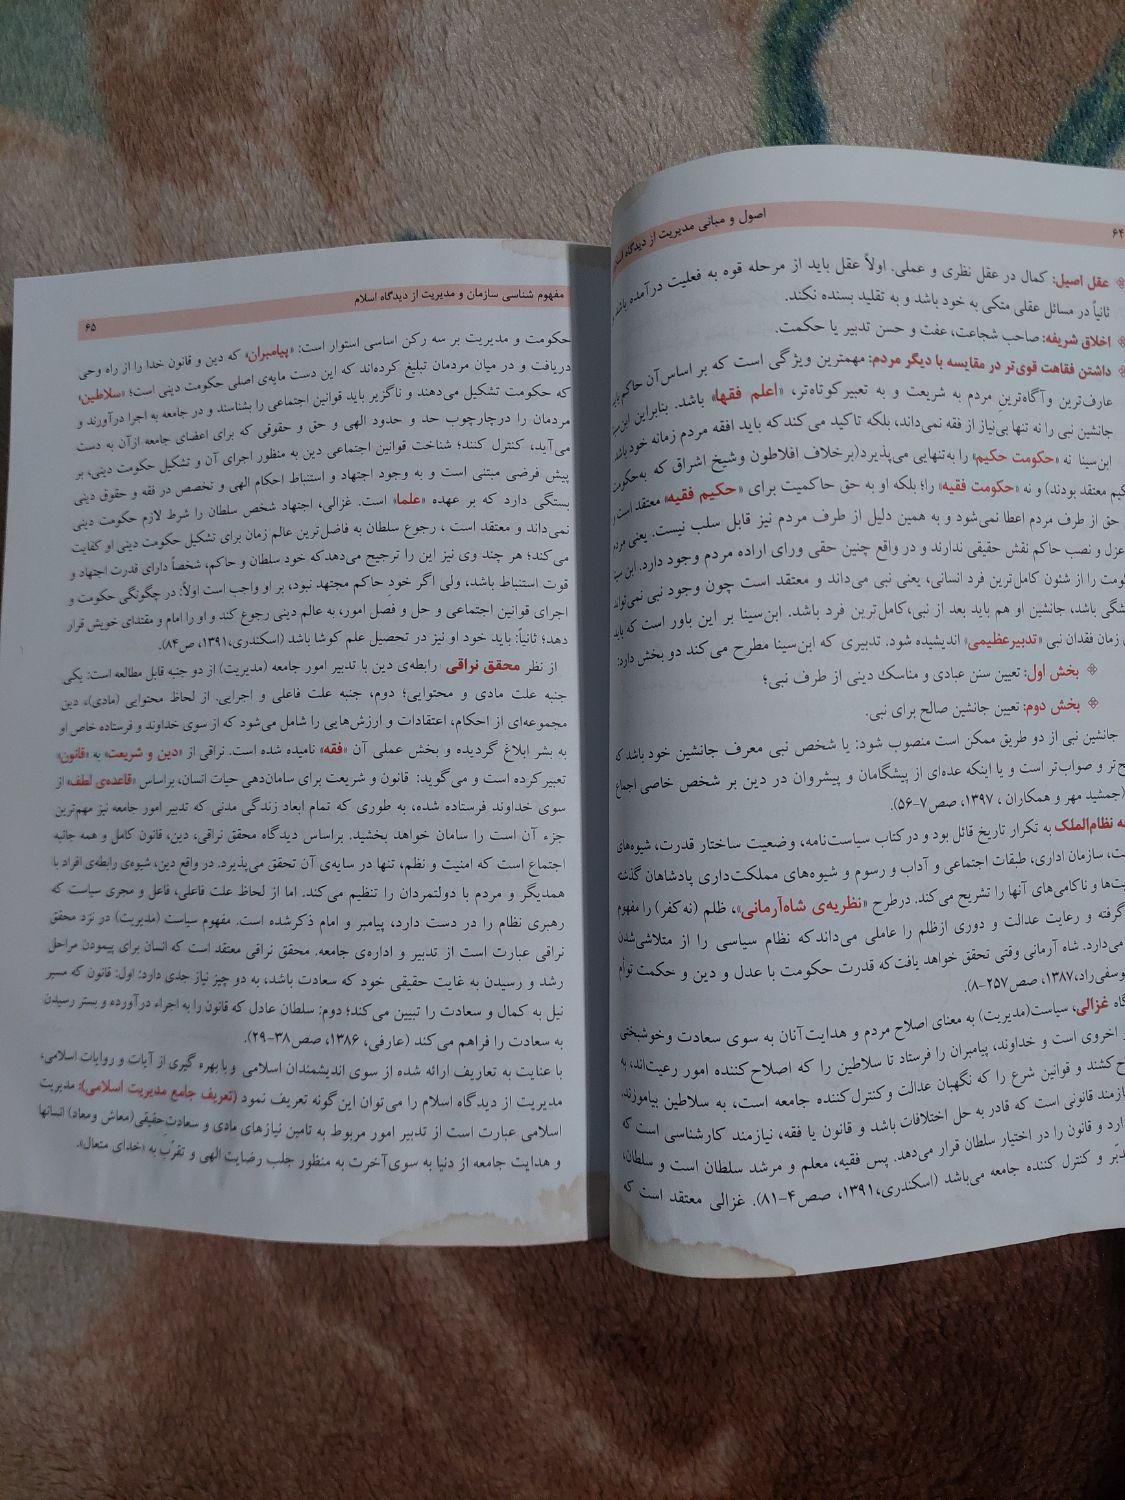 ۶۴
اصول و مبانی مدیریت از دیدگاه
عقل اصیل: کمال در عقل نظری و عملی. اولاً عقل باید از مرحله قوه به فعلیت درآمده باشد
ثانیاً در مسائل عقلی متکی به خود باشد و به تقلید بسنده نکند.
اخلاق شریفه: صاحب شجاعت، عفت و حسن تدبیر یا حکمت.
داشتن فقاهت قوی‌تر در مقایسه با دیگر مردم: مهمترین ویژگی است که بر اساس آن حاکم باید
عارف‌ترین و آگاه‌ترین مردم به شریعت و به تعبیر کوتاه‌تر، «اعلم فقها» باشد. بنابراین ابن‌سینا
جانشین نبی را نه تنها بی‌نیاز از فقه نمی‌داند، بلکه تاکید می‌کند که باید افقه مردم زمانه خود باشد
ابن‌سینا نه «حکومت حکیم» را به‌تنهایی می‌پذیرد(برخلاف افلاطون و شیخ اشراق که به حکومت
معتقد بودند) و نه «حکومت فقیه» را؛ بلکه او به حق حاکمیت برای «حکیم فقیه» معتقد است و
حق از طرف مردم اعطا نمی‌شود و به همین دلیل از طرف مردم نیز قابل سلب نیست. یعنی مردم
عزل و نصب حاکم نقش حقیقی ندارند و در واقع چنین حقی ورای اراده مردم وجود دارد. ابن سینا
را از شئون کامل‌ترین فرد انسانی، یعنی نبی می‌داند و معتقد است چون وجود نبی نمی‌تواند
باشد، جانشین او هم باید بعد از نبی، کامل‌ترین فرد باشد. ابن‌سینا بر این باور است که باید
زمان فقدان نبی «تدبیر عظیمی» اندیشیده شود. تدبیری که ابن‌سینا مطرح می کند دو بخش دارد:
بخش اول: تعیین سنن عبادی و مناسک دینی از طرف نبی؛
بخش دوم: تعیین جانشین صالح برای نبی.
جانشین نبی از دو طریق ممکن است منصوب شود: یا شخص نبی معرف جانشین خود باشد که
و صواب‌تر است و یا اینکه عده‌ای از پیشگامان و پیشروان در دین بر شخص خاصی اجماع
(جمشید مهر و همکاران ، ۱۳۹۷، صص۷-۵۶).
نظام‌الملک به تکرار تاریخ قائل بود و در کتاب سیاست‌نامه، وضعیت ساختار قدرت، شیوه‌های
سازمان اداری، طبقات اجتماعی و آداب و رسوم و شیوه‌های مملکت‌داری پادشاهان گذشته
و ناکامی‌های آنها را تشریح می‌کند. در طرح «نظریه‌ی شاه‌آرمانی»، ظلم (نه کفر) را مفهوم
گرفته و رعایت عدالت و دوری از ظلم را عاملی می‌داند که نظام سیاسی را از متلاشی‌شدن
می‌دارد. شاه آرمانی وقتی تحقق خواهد یافت که قدرت حکومت با عدل و دین و حکمت توأم
۱۳۸۷، صص۲۵۷-۸).
غزالی، سیاست(مدیریت) به معنای اصلاح مردم و هدایت آنان به سوی سعادت و خوشبختی
اخروی است و خداوند، پیامبران را فرستاد تا سلاطین را که اصلاح کننده امور رعیت‌اند، به
کشند و قوانین شرع را که نگهبان عدالت و کنترل کننده جامعه است، به سلاطین بیاموزند.
قانونی است که قادر به حل اختلافات باشد و قانون یا فقه، نیازمند کارشناسی است که
و قانون را در اختیار سلطان قرار می‌دهد. پس فقیه، معلم و مرشد سلطان است و سلطان،
و کنترل کننده جامعه می‌باشد (اسکندری، ۱۳۹۱، صص۴-۸۱). غزالی معتقد است که
مفهوم شناسی سازمان و مدیریت از دیدگاه اسلام
۶۵
حکومت و مدیریت بر سه رکن اساسی استوار است: «پیامبران» که دین و قانون خدا را از راه وحی
دریافت و در میان مردمان تبلیغ کرده‌اند که این دست مایه‌ی اصلی حکومت دینی است؛ «سلاطین»
که حکومت تشکیل می‌دهند و ناگزیر باید قوانین اجتماعی را بشناسند و در جامعه به اجرا درآورند و
مردمان را درچارچوب حد و حدود الهی و حق و حقوقی که برای اعضای جامعه ازآن به دست
می‌آید، کنترل کنند؛ شناخت قوانین اجتماعی دین به منظور اجرای آن و تشکیل حکومت دینی، بر
پیش فرضی مبتنی است و به وجود اجتهاد و استنباط احکام الهی و تخصص در فقه و حقوق دینی
بستگی دارد که بر عهده «علما» است. غزالی، اجتهاد شخص سلطان را شرط لازم حکومت دینی
نمی‌داند و معتقد است ، رجوع سلطان به فاضل‌ترین عالم زمان برای تشکیل حکومت دینی او کفایت
می‌کند؛ هر چند وی نیز این را ترجیح می‌دهدکه خود سلطان و حاکم، شخصاً دارای قدرت اجتهاد و
قوت استنباط باشد، ولی اگر خودِ حاکم مجتهد نبود، بر او واجب است اولاً: در چگونگی حکومت و
اجرای قوانین اجتماعی و حل و فصل امور، به عالم دینی رجوع کند و او را امام و مقتدای خویش قرار
دهد؛ ثانیاً: باید خود او نیز در تحصیل علم کوشا باشد (اسکندری، ۱۳۹۱، ص۸۴).
از نظر محقق نراقی رابطه‌ی دین با تدبیر امور جامعه (مدیریت) از دو جنبه قابل مطالعه است: یکی
جنبه علت مادی و محتوایی؛ دوم، جنبه علت فاعلی و اجرایی. از لحاظ محتوایی (مادی)، دین
مجموعه‌ای از احکام، اعتقادات و ارزش‌هایی را شامل می‌شود که از سوی خداوند و فرستاده خاص او
به بشر ابلاغ گردیده و بخش عملی آن «فقه» نامیده شده است. نراقی از «دین و شریعت» به «قانون»
تعبیر کرده است و می‌گوید: قانون و شریعت برای سامان‌دهی حیات انسان، براساس «قاعده‌ی لطف» از
سوی خداوند فرستاده شده، به طوری که تمام ابعاد زندگی مدنی که تدبیر امور جامعه نیز مهم‌ترین
جزء آن است را سامان خواهد بخشید. براساس دیدگاه محقق نراقی، دین، قانون کامل و همه جانبه
اجتماع است که امنیت و نظم، تنها در سایه‌ی آن تحقق می‌پذیرد. در واقع دین، شیوه‌ی رابطه‌ی افراد با
همدیگر و مردم با دولتمردان را تنظیم می‌کند. اما از لحاظ علت فاعلی، فاعل و مجری سیاست که
رهبری نظام را در دست دارد، پیامبر و امام ذکرشده است. مفهوم سیاست (مدیریت) در نزد محقق
نراقی عبارت است از تدبیر و اداره‌ی جامعه. محقق نراقی معتقد است که انسان برای پیمودن مراحل
رشد و رسیدن به غایت حقیقی خود که سعادت باشد، به دو چیز نیاز جدی دارد: اول: قانون که مسیر
نیل به کمال و سعادت را تبیین می‌کند؛ دوم: سلطان عادل که قانون را به اجراء درآورده و بستر رسیدن
به سعادت را فراهم می‌کند (عارفی، ۱۳۸۶، صص۳۸-۲۹).
با عنایت به تعاریف ارائه شده از سوی اندیشمندان اسلامی و با بهره گیری از آیات و روایات اسلامی،
مدیریت از دیدگاه اسلام را می‌توان این‌گونه تعریف نمود (تعریف جامع مدیریت اسلامی): مدیریت
اسلامی عبارت است از تدبیر امور مربوط به تامین نیازهای مادی و سعادت حقیقی(معاش ومعاد) انسانها
و هدایت جامعه از دنیا به سوی آخرت به منظور جلب رضایت الهی و تقرّب به «خدای متعال».